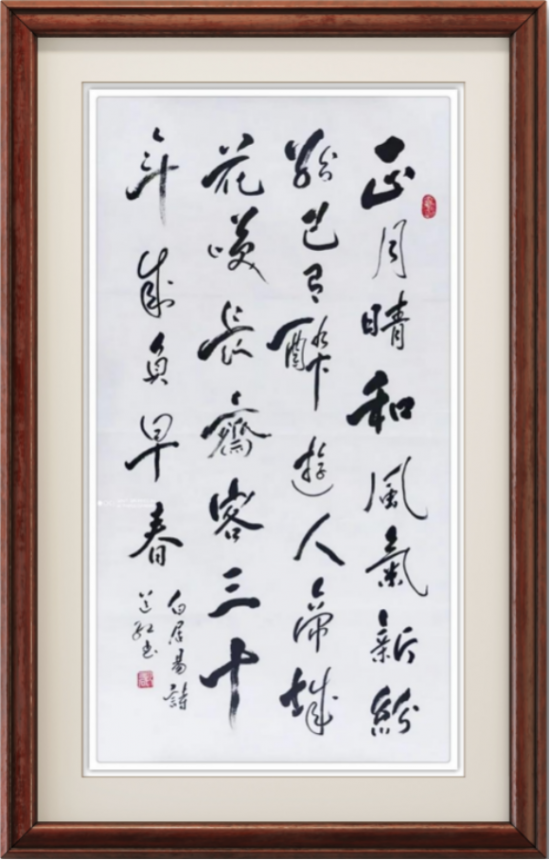 正月晴和風氣新紛
紛已有醉遊人帝城
花咲長齋客三十
年歲負早春
白居易詩
道红书